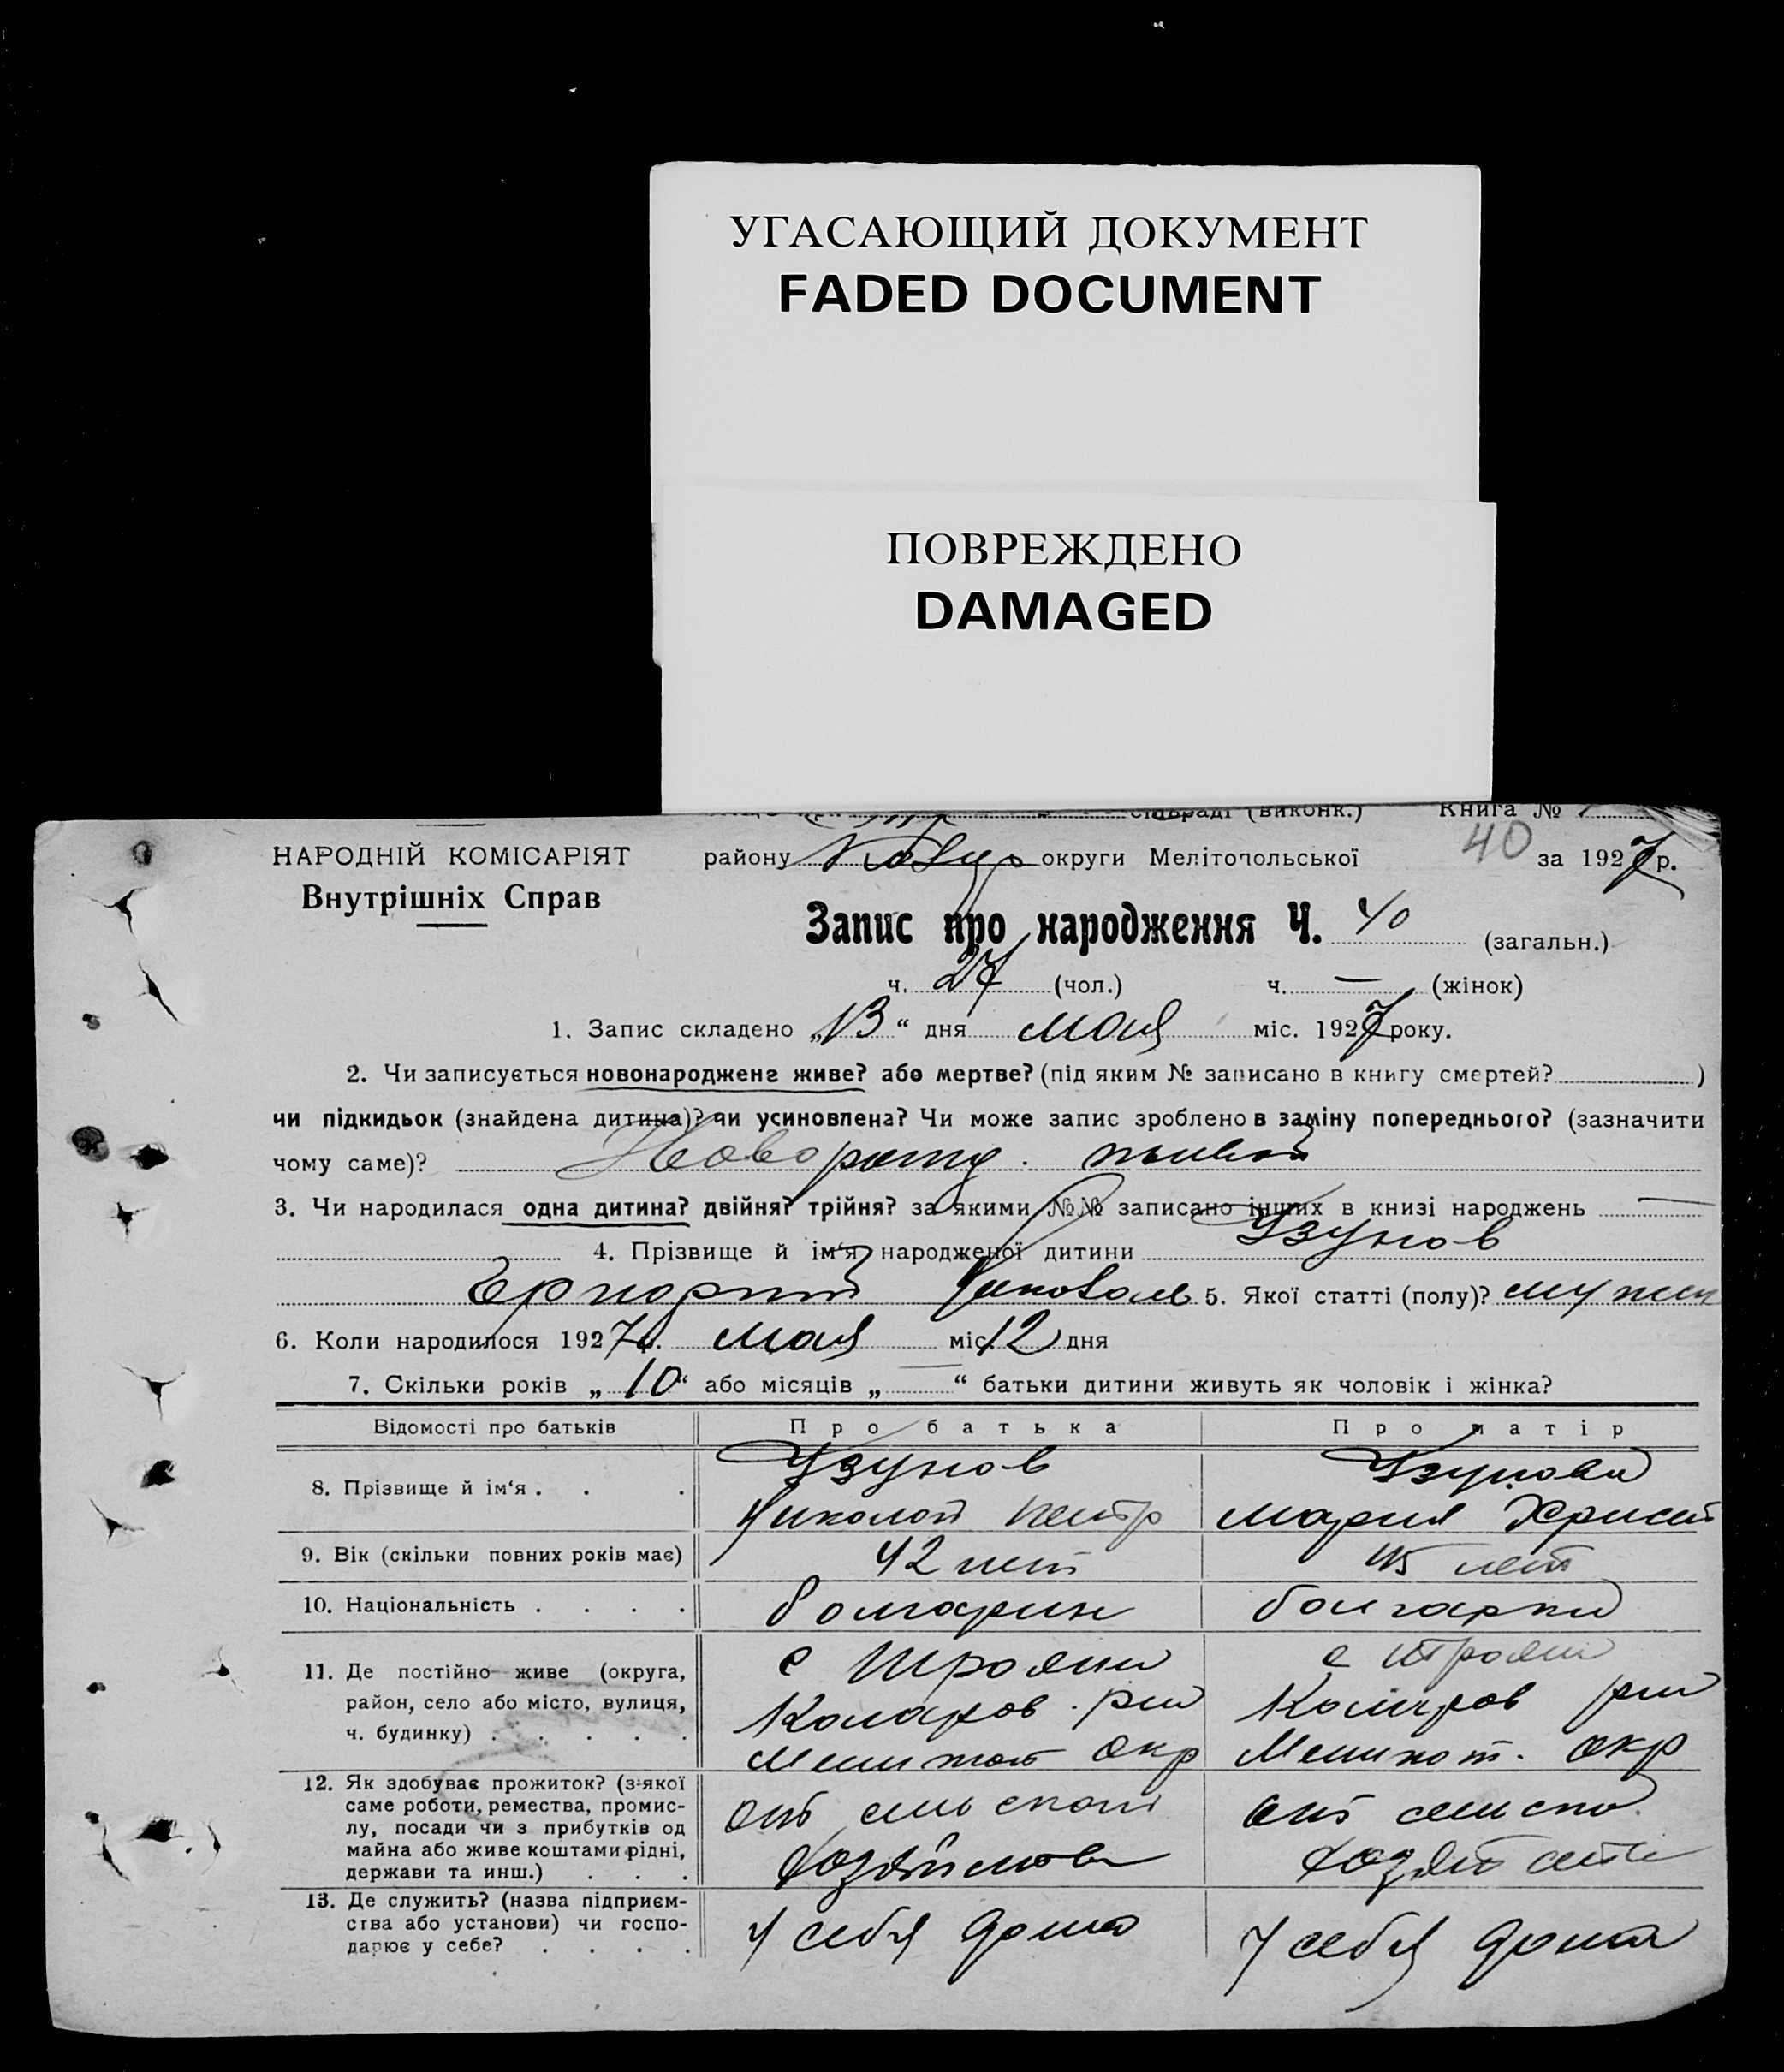 УГАСАЮЩИЙ ДОКУМЕНТ
FADED DOCUMENT
ПОВРЕЖДЕНО
DAMAGED
сільраді (виконк.) Книга №
НАРОДНІЙ КОМІСАРІЯТ
Внутрішніх Справ
району округи Мелітопольської 40 за 1927 р.
Запис про народження Ч. 40 (загальн.)
ч. 27 (чол.) ч. — (жінок)
1. Запис складено „13“ дня мая міс. 1927 року.
2. Чи записується новонароджене живе? або мертве? (під яким № записано в книгу смертей? )
чи підкидьок (знайдена дитина)? чи усиновлена? Чи може запис зроблено в заміну попереднього? (зазначити
чому саме)?
3. Чи народилася одна дитина? двійня? трійня? за якими №№ записано інших в книзі народжень —
4. Прізвище й ім‘я народженої дитини Узунов
5. Якої статті (полу)?
6. Коли народилося 1927 р. мая міс. 12 дня
7. Скільки років „10“ або місяців „ — “ батьки дитини живуть як чоловік і жінка?
Відомості про батьків Про батька Про матір
8. Прізвище й ім‘я . . . Узунов Узунова
Николай Петр Мария Христ
9. Вік (скільки повних років має) 42 лет 45 лет
10. Національність . . . . болгарин болгарка
11. Де постійно живе (округа,
район, село або місто, вулиця,
ч. будинку) . . . . .
с Трояни
Коларов. р-на
Мелитоп окр
с Трояни
Коларов р-на
Мелитоп. окр
12. Як здобуває прожиток? (з якої
саме роботи, ремества, промис-
лу, посади чи з прибутків од
майна або живе коштами рідні,
держави та инш.) . . .
от сельского
хозяйства
от сельско
хозяйства
13. Де служить? (назва підприєм-
ства або установи) чи госпо-
дарює у себе? . . . .
У себя дома
У себя дома